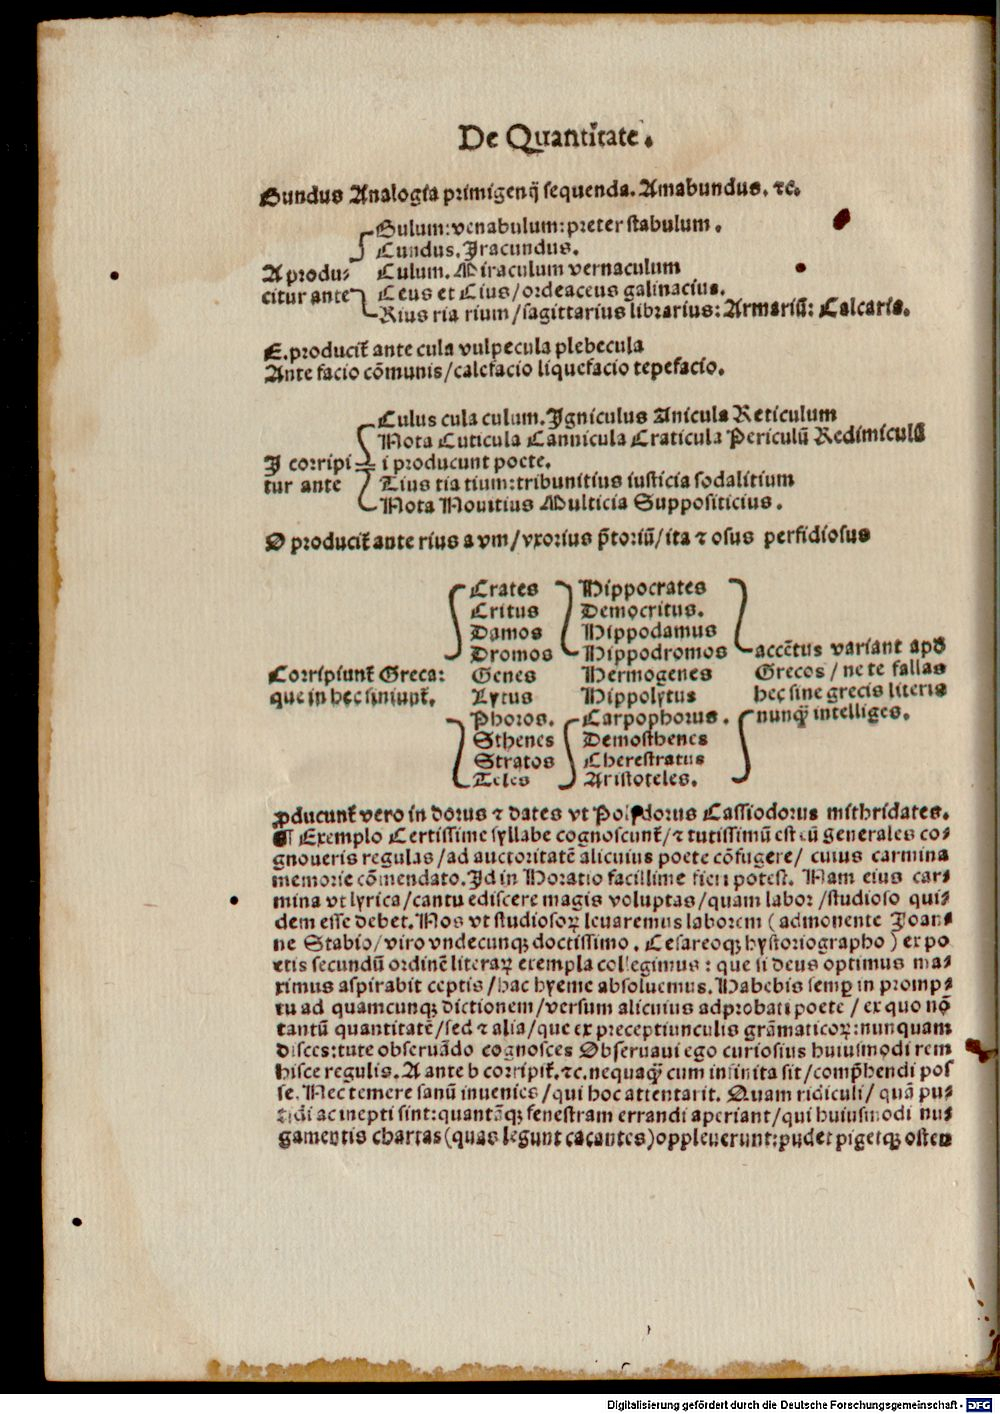 De Quantitate.
Bundus Analogia primigenij sequenda. Amabundus. ⁊c.
Bulum: venabulum: preter stabulum.
Cundus. Iracundus.
A produ⸗ Culum. Miraculum vernaculum
citur ante Ceus et Cius/ordeaceus galinacius.
Rius ria rium/sagittarius librarius: Armariū: Calcaria.
E. producit᷑ ante cula vulpecula plebecula
Ante facio cōmunis/calefacio liquefacio tepefacio.
Culus cula culum. Igniculus Anicula Reticulum
Nota Cuticula Cannicula Craticula Periculū Redimiculū
I corripi⸗ i producunt poete.
tur ante Tius tia tium: tribunitius iusticia sodalitium
Nota Nouitius Multicia Suppositicius.
O producit᷑ ante rius a vm/vxorius p̄toriū/ita ⁊ osus perfidiosus
Crates Hippocrates
Critus Democritus.
Damos Hippodamus
Dromos Hippodromos accētus variant apð
Corripiunt᷑ Greca: Genes Hermogenes Grecos/ne te fallas
que in hęc finiunt᷑. Lytus Hippolytus hęc sine grecis literis
Phoros. Carpophorus. nunꝗ̄ intelliges.
Sthenes Demosthenes
Stratos Cherestratus
Teles Aristoteles.
ꝓducunt᷑ vero in dorus ⁊ dates vt Polydorus Cassiodorus mithridates.
¶ Exemplo Certissime syllabe cognoscunt᷑/⁊ tutissimū est cū generales co⸗
gnoueris regulas/ad auctoritatē alicuius poete cōfugere/ cuius carmina
memorie cōmendato. Id in Horatio facillime fieri potest. Nam eius car⸗
mina vt lyrica/cantu ediscere magis voluptas/quam labor/studioso qui⸗
dem esse debet. Nos vt studiosoꝝ leuaremus laborem (admonente Joan⸗
ne Stabio/viro vndecunqꝫ doctissimo. Cesareoqꝫ hystoriographo) ex po
etis secundū ordinē literaꝝ exempla collegimus: que si deus optimus ma⸗
ximus aspirabit ceptis/hac hyeme absoluemus. Habebis semꝑ in promp⸗
tu ad quamcunqꝫ dictionem/versum alicuius adprobati poete/ ex quo nō
tantū quantitatē/sed ⁊ alia/que ex preceptiunculis grāmaticoꝝ: nunquam
disces: tute obseruādo cognosces Obseruaui ego curiosius huiusmodi rem
hisce regulis. A ante b corripit᷑. ⁊c. nequaꝗ̄ cum infinita sit/comp̄hendi pos
se. Nec temere sanū inuenies/qui hoc attentarit. Quam ridiculi/ quā pu⸗
tidi ac inepti sint: quantāqꝫ fenestram errandi aperiant/qui huiusmodi nu⸗
gamentis chartas (quas legunt cacantes) oppleuerunt: pudet pigetqꝫ osten
Digitalisierung gefördert durch die Deutsche Forschungsgemeinschaft - DFG